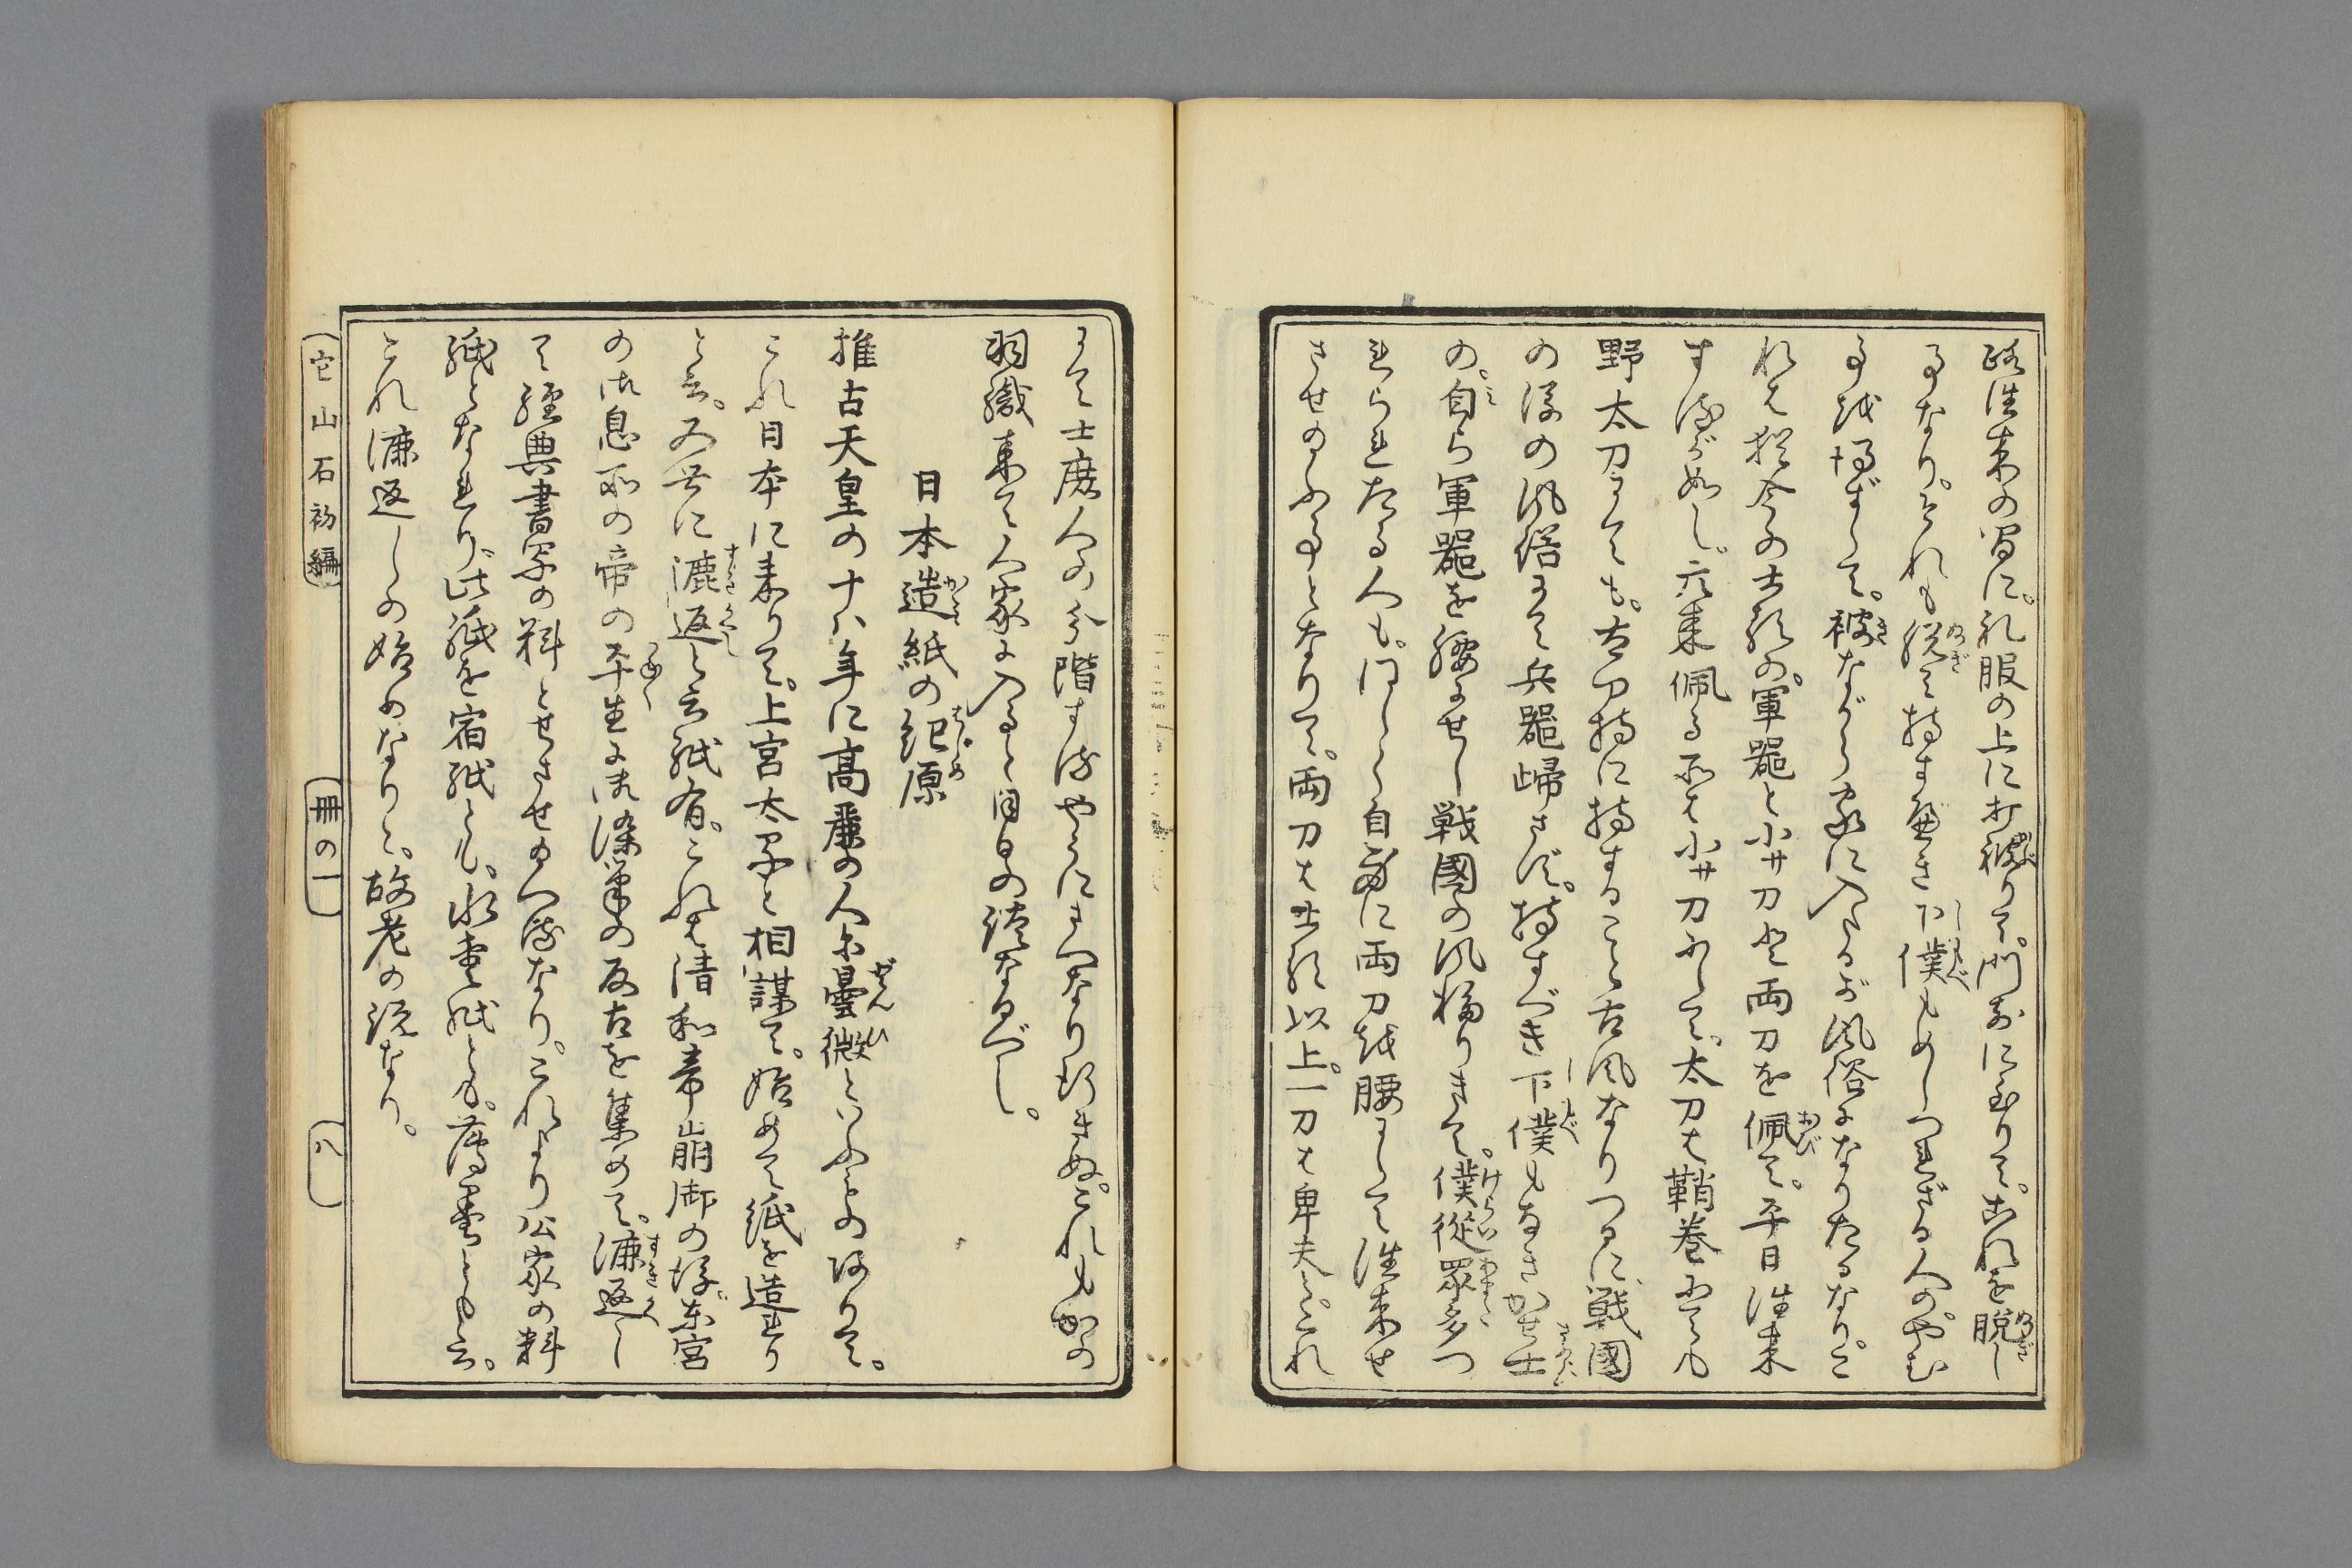 路往来の間に。礼服の上に打被りて。門前に至りて。これを脱し
るなり。それも脱て持すべき下僕もめしつれざる人の。やむ
事を得ずして。被ながら家に入たるが風俗になりたるなり。こ
れは猶今の士類の。軍器と小サ刀と両刀を佩て。平日往来
するが如し。元来佩る所は小サ刀にして。太刀は鞘巻にても
野太刀にても。太刀持に持することは古風なりつるに。戦国
の後の風俗にて兵器帰さず。持すべき下僕もなきかせ士
の。自ら軍器を腰にせし戦国の風移りきて。僕従衆多つ
れられたる人も。同じく自身に両刀を腰にして往来せ
させのふ事となりて。両刀は士類以上。一刀は卑夫と。これ
にて士庶人の分階するやうにさへなり行きぬ。これもかの
羽織来て人家に入ると同日の談なるべし。
日本造紙の紀原
推古天皇の十八年に高麗の人僧曇微といふもの渡りて。
これ日本に来りて。上宮太子と相謀て。始めて紙を造れり
と云。又世に漉返と云紙有。これは清和帝崩御の後。東宮
の御息所の帝の平生に御染筆の反古を集めて。漉返し
て経典書写の料とせさせのへるなり。これより公家の料
紙となれり。此紙を宿紙とも。水雲紙とも。薄墨とも云。
これ漉返しの始めなりと。故老の説なり。
它山石初編
冊の一
八